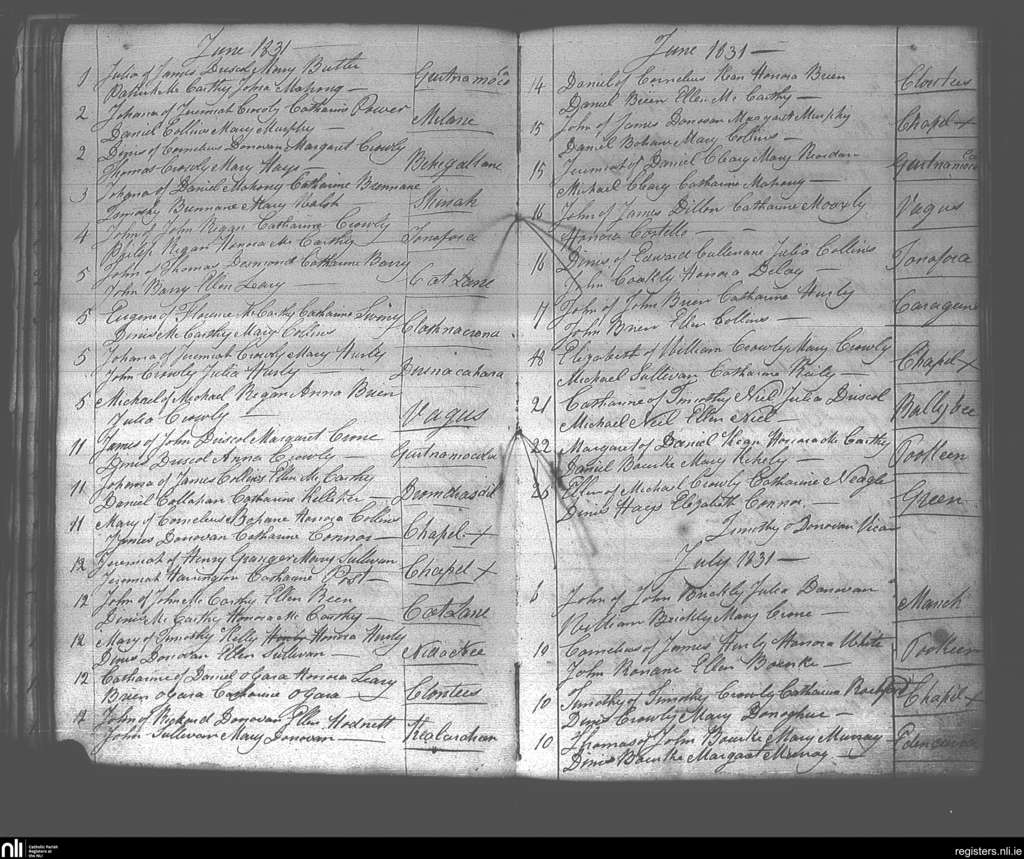 June 1831
1 Julia of James Driscol Mary Butler Gurtnamoco
Patrick Mc Carthy Johna Mahony
2 Johana of Jeremiah Crowly Catharine Power Milane
Daniel Collins Mary Murphy
2 Denis of Cornelius Donovan Margaret Crowly
Thomas Crowly Mary Hays
3 Johana of Daniel Mahony Catharine Brennane Shinah
Timothy Brennane Mary Walsh
4 John of John Regan Catharine Crowly Tonafora
Philip Regan Honora Mc Carthy
5 John of Thomas Desmond Catharine Barry Cat Lane
John Barry Ellen Leary
5 Eugene of Florence McCarthy Catharine Swiny Cloghnacrona
Denis Mc Carthy Mary Collins
5 Johana of Jeremiah Crowly Mary Hurly
John Crowly Julia Hurly
5 Michael of Michael Regan Anna Buen Vagus
Julia Crowly
11 James of John Driscol Margaret Crone
Denis Driscol Anna Crowly
11 Johana of James Collins Ellen Mc Carthy
Daniel Callahan Catharine Kelleher
11 Mary of Cornelius Bohane Honora Collins Chapel +
James Donovan Catharine Connor
12 Jeremiah of Henry Granger Mary Sullivan Chapel +
Jeremiah Harrington Catharine Post
12 John of John Mc Carthy Ellen Been Cat Lane
Denis Mc Carthy Honora Mc Carthy
12 Mary of Timothy Kelly Honora Hurly
Denis Donovan Ellen Sullivan
12 Catharine of Daniel O Gara Honora Leary Clontees
Brien O Gara Catharine O Gara
12 John of Richard Donovan Ellen Hodnett
John Sullivan Mary Donovan
June 1831
14 Daniel of Cornelius Kean Honora Brien Clontees
Daniel Brien Ellen Mc Carthy
15 John of James Donovan Margaret Murphy Chapel +
Daniel Bohane Mary Collins
15 Jeremiah of Daniel Cleary Mary Reardan
Michael Cleary Catharine Mahony
16 John of James Dillon Catharine Moaxly Vagus
Honora Costello
16 Denis of Edward Cullenane Julia Collins Tonafora
John Coakly Honora Delay
17 John of John Brien Catharine Hurly
John Brien Ellen Collins
18 Elizabeth of William Crowly Mary Crowly Chapel +
Michael Sullivan Catharine Reily
21 Catharine of Timothy Neil Julia Driscol
Michael Neil Ellen Neil
22 Margaret of Daniel Kean Honora Mc Carthy Tookeen
Daniel Bourke Mary
25 Ellen of Michael Crowly Catharine Neagle Green
Denis Hays Elizabeth Connor
Timothy O Donovan Vicar
July 1831
6 John of John Brickly Julia Donovan Manch
William Brickly Mary Crone
10 Cornelius of James Hurly Honora White Tookeen
John Ronane Ellen Bourke
10 Timothy of Timothy Crowly Catharine Rochford Chapel +
Denis Crowly Mary Donoghue
10 Thomas of John Bourke Mary Murray
Denis Bourke Margaret Murray
nli Catholic Parish
Registers at
the NLI
registers.nli.ie